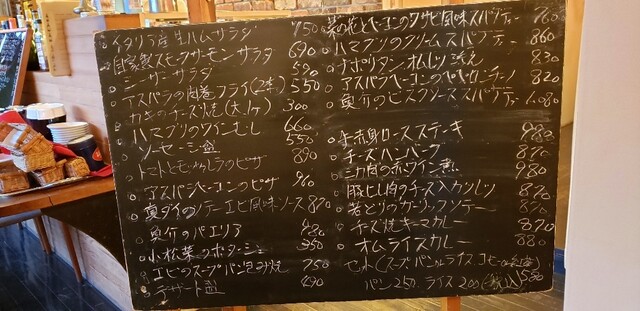 イタリア産生ハムサラダ 750
自家製スモークサーモンサラダ 690
シーザーサラダ 590
アスパラの肉巻フライ(2本) 550
カキのチーズ焼(大.1ヶ) 300
ハマグリのワインむし 660
ソーセージ盛 550
トマトとモッツァレラのピザ 890
アスパラベーコンのピザ 960
真ダイのソテーエビ風味ソース 870
魚介のパエリア 980
小松菜のポタージュ 350
エビのスープパン包み焼 750
デザート盛 490
菜の花とベーコンのワサビ風味スパゲティー 760
ハマグリのクリームスパゲティー 860
ナポリタンオムレツ添え 830
アスパラベーコンのペペロンチーノ 820
魚介のビスクソーススパゲティー 1,080
牛赤身ロースステーキ 980
チーズハンバーグ 870
三角肉の赤ワイン煮 980
豚ヒレ肉のチーズ入カツレツ 870
若どりのガーリックソテー 870
チーズ焼キーマカレー 870
オムライスカレー 880
セット(スープ パン又はライス コーヒー 500
パン250 ライス200 (税込)